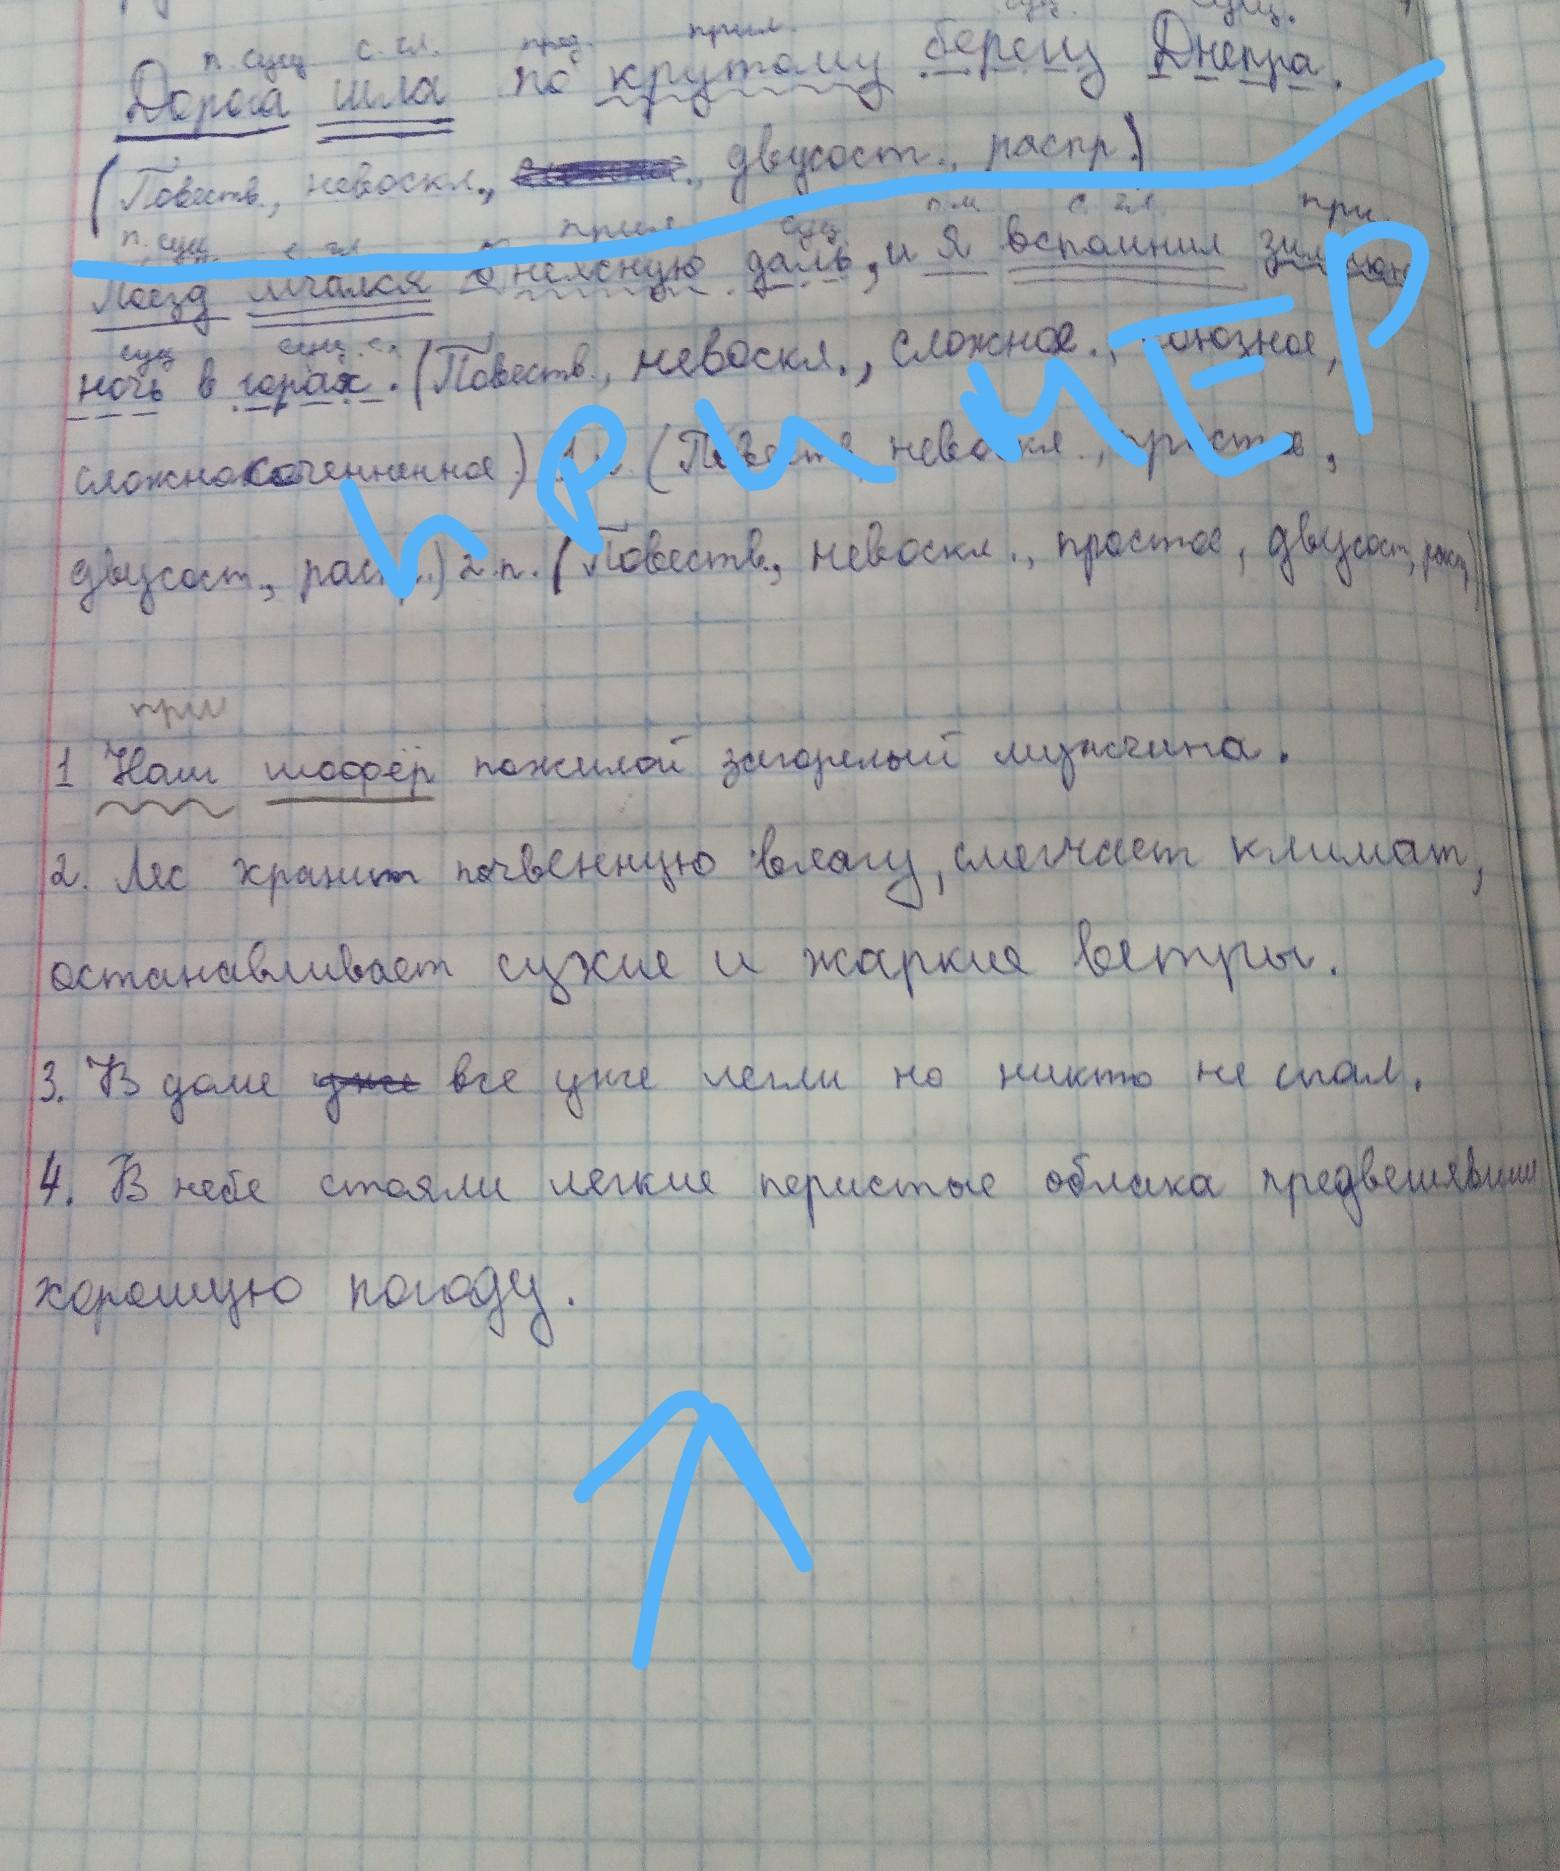 сущ. сущ.
п. сущ с. гл. пред. прил.
Дорога шла по крутому берегу Днепра.
(Повеств., невоскл., двусост., распр.)
п. сущ с. гл прил сущ п. м. с. гл. при.
Поезд мчался в неясную даль, и я вспомнил зимнюю
сущ сущ.
ночь в горах. (Повеств., невоскл., сложное., союзное,
ПРИМЕР
сложносочененное) 1 п. (Повеств, невоскл., простое,
двусост, расп.) 2.п. (Повеств., невоскл., простое, двусост, расп)
при
1 Наш шофёр пожилой загорелый мужчина.
2. Лес хранит почвенную влагу, смягчает климат,
останавливает сухие и жаркие ветры.
3. В доме уже все уже легли но никто не спал.
4. В небе стояли легкие перистые облака предвещявшии
хорошую погоду.